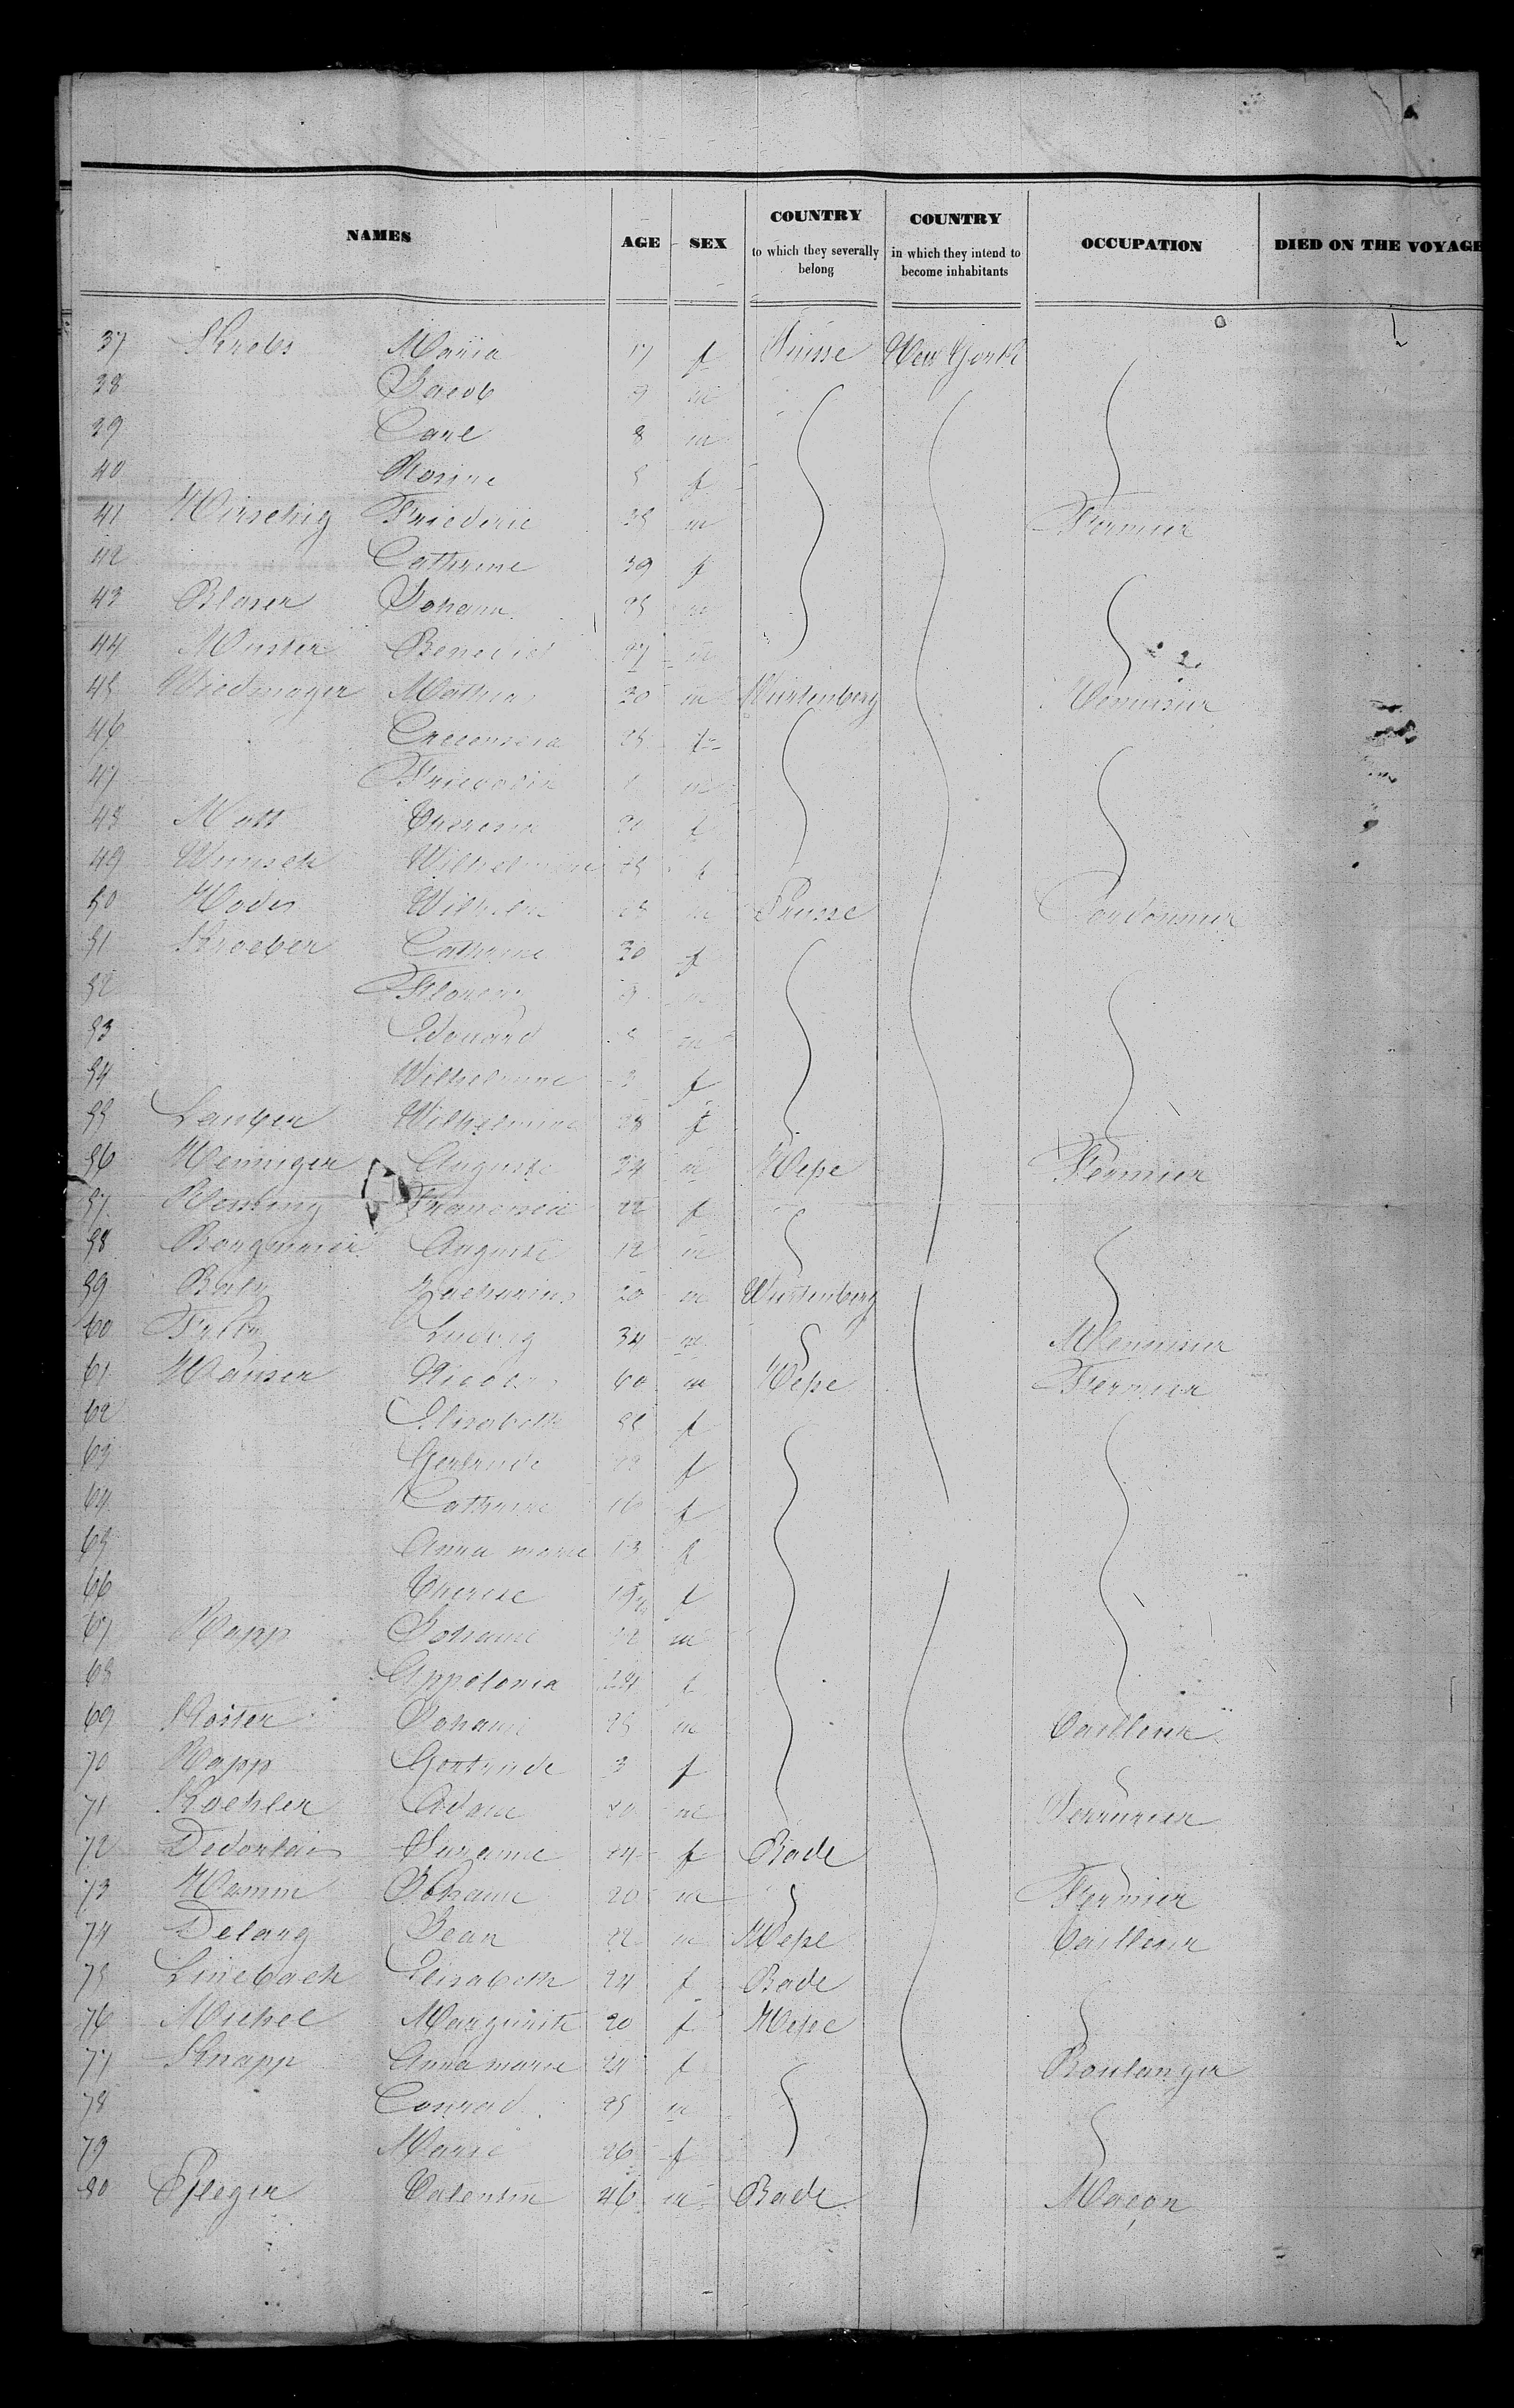 NAMES AGE SEX COUNTRY to which they severally belong COUNTRY in which they intend to become inhabitants OCCUPATION DIED ON THE VOYAGE
37 Krebs Maria 17 f Suisse New York
38 Jacob 9 m
39 Carl 8 m
40 Rosine 5 f
41 Hirschig Friederic 35 m Fermier
42 Cathrine 39 f
43 Blaser Johann 25 m
44 Muster Benedict 27 m
45 Wiedmayer Mathias 30 m Wurtenberg Menuisier
46 Crecensia 25 f
47 m
48 Matt Theresia f
49 Wunsch Wilhelmine 25 f
50 Hodes Wilhelm m Prusse Cordonnier
51 Kroeber Cathrine 30 f
52 Florenz
53 Edouard m
54 Wilhelmine 3 f
55 Lauber Wilhelmine 28 f
56 Henniger Auguste 24 m Hesse Fermier
57 Francisca 22 f
58 Bergmaier Auguste 12 m
59 Zacharias 20 m Wurtenberg
60 Ludwig 34 m Menuisier
61 Hauser Nicolas 60 m Hesse Fermier
62 Elisabeth 55 f
63 Gertrude f
64 Cathrine 16 f
65 Anna marie 13 f
66 Therese f
67 Happ Johann m
68 Appolonia 24 f
69 Koster Johann 25 m Tailleur
70 Happ Gertrude 3 f
71 Koehler Adam m Serrurier
72 Suzanne 24 f Bade
73 Hamm Johann 20 m Fermier
74 Delarg Jean 22 m Hesse Tailleur
75 Linebach Elisabeth 24 f Bade
76 Michel Marguerite 20 f Hesse
77 Knapp Anna marie 24 f Boulanger
78 Conrad 25 m
79 Marie 26 f
80 Pfleger Valentin 46 m Bade Maçon